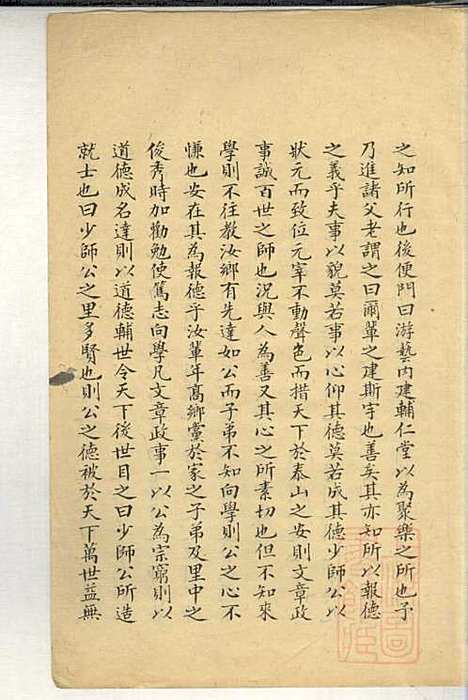 之知所行也後便門曰游藝內建輔仁堂以為聚樂之所也予
乃進諸父老謂之曰爾輩之建斯宇也善矣其亦知所以報德
之義乎夫事以貌莫若事以心仰其德莫若成其德少師公以
狀元而致位元宰不動聲色而措天下於泰山之安則文章政
事誠百世之師也況與人為善又其心之所素切也但不知來
學則不往教汝鄉有先達如公而子弟不知向學則公之心不
慊也安在其為報德乎汝輩年高鄉黨於家之子弟及里中之
俊秀時加勸勉使篤志向學凡文章政事一以公為宗窮則以
道德成名達則以道德輔世令天下後世目之曰少師公所造
就士也曰少師公之里多賢也則公之德被於天下萬世益無